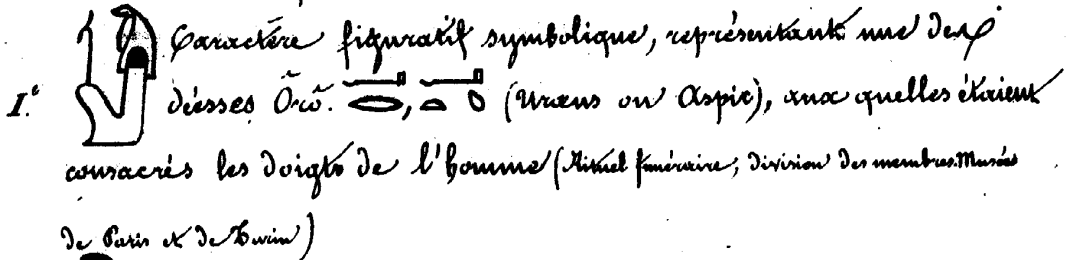 Caractère figuratif symbolique, représentant une des
I.e déesses Ôrô. (Uraeus ou Aspic), aux quelles étaient
consacrés les doigts de l'homme (Rituel funéraire, division des membres. Musées
de Paris et de Turin)